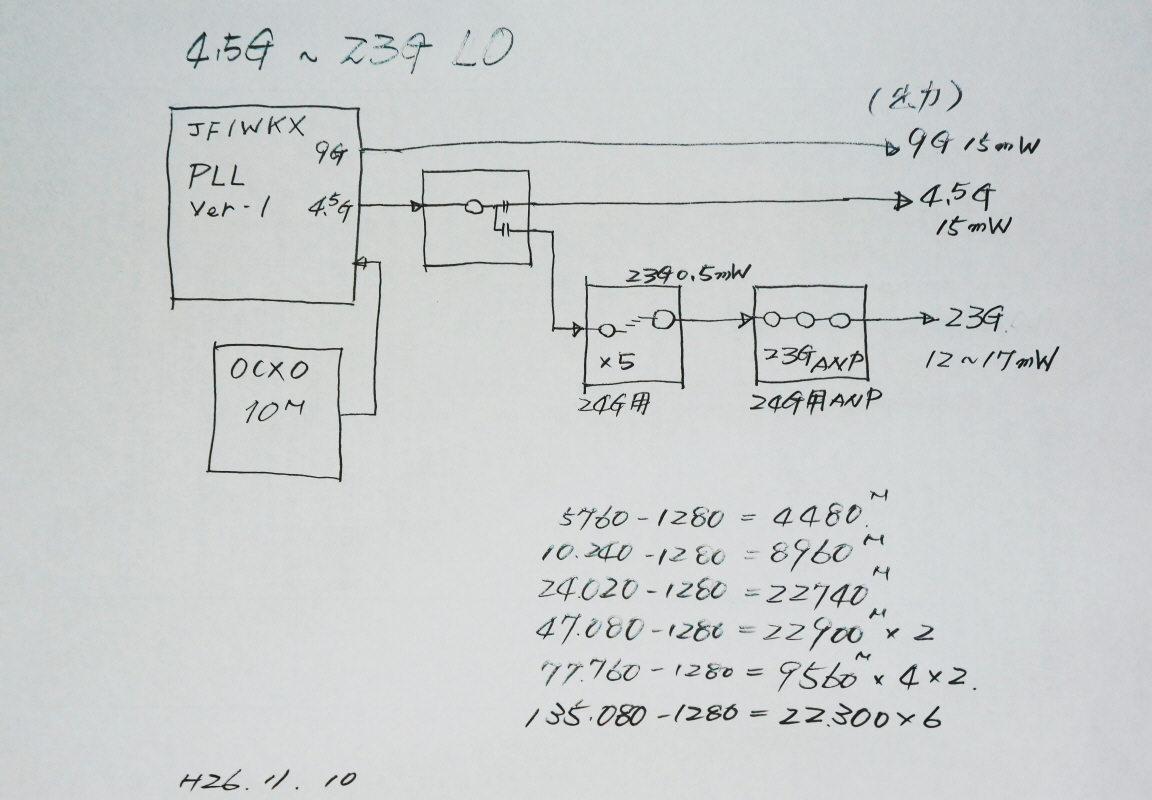 4.5G ~ 23G LO
(出力)
JF1WKX
9G
9G 15mW
PLL
Ver-1
4.5G
4.5G
15mW
23G 0.5mW
23G
12~17mW
×5
23G ANP
24G用
24G用ANP
OCXO
10M
5760-1280 = 4480M
10.240-1280 = 8960M
24.020-1280 = 22740M
47.080-1280 = 22900M × 2
77.760-1280 = 9560M × 4 × 2.
135.080-1280 = 22.300×6
H26.11.10